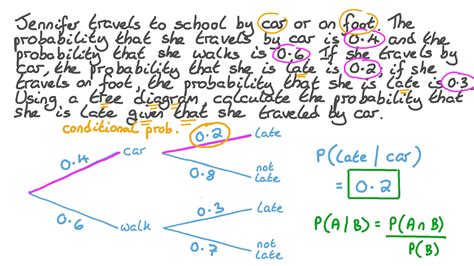 Jennifer travels to school by car or on foot. The
probability that she travels by car is 0.4 and the
probability that she walks is 0.6. If she travels by
car, the probability that she is late is 0.2, if she
travels on foot, the probability that she is late is 0.3.
Using a tree diagram, calculate the probability that
she is late given that she traveled by car.
conditional prob.
0.2
late
0.4
car
0.8
not
late
P(late | car)
= 0.2
0.6
walk
0.3
late
0.7
not
late
P(A|B) = P(A∩B)
P(B)